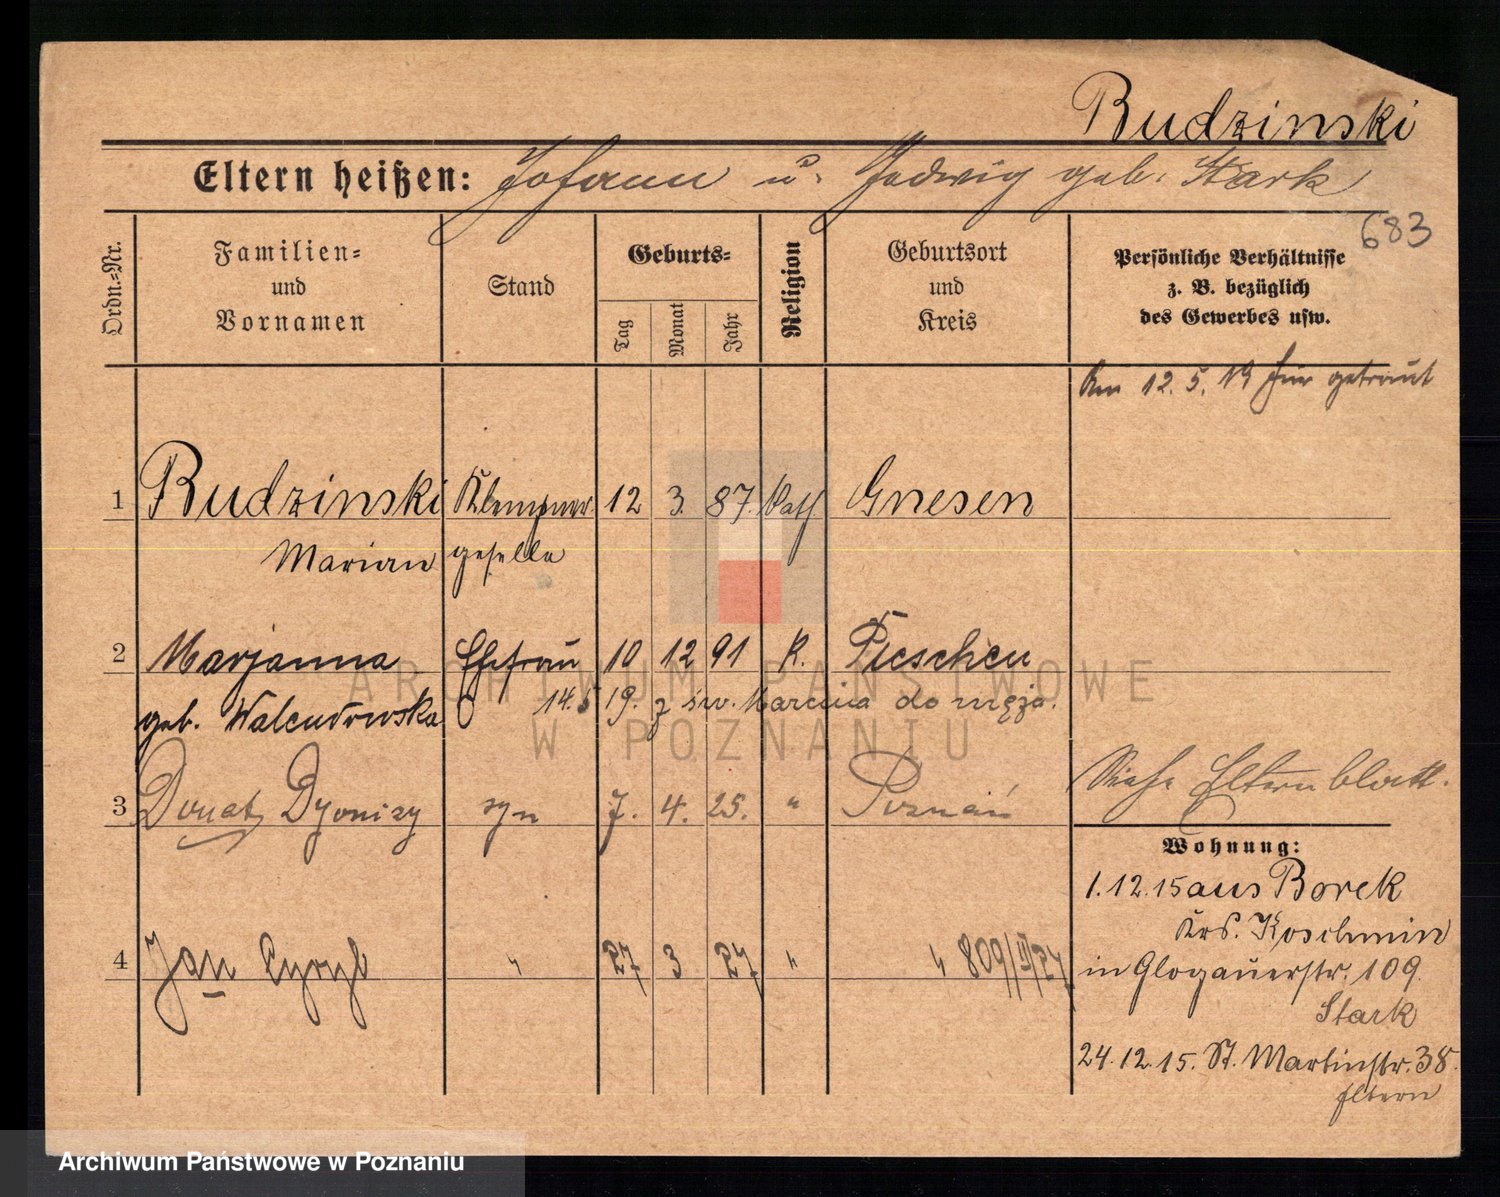 Rudzinski
Eltern heißen: Johann u. Hedwig geb. Stark
683
Ordn.-Nr.
Familien-
und
Vornamen
Stand
Geburts-
Tag
Monat
Jahr
Religion
Geburtsort
und
Kreis
Persönliche Verhältnisse
z. B. bezüglich
des Gewerbes usw.
Am 12. 5. 19 hier getraut
1 Rudzinski Klempner 12 3. 87. Kath Gnesen
Marian geselle
2 Marjanna Ehefrau 10 12 91 K. Pleschen
geb. Walendowska 14.5 19. z św. Marcina do męża.
3 Donat Dyonizy syn 7. 4. 25. " Poznań
Siehe Elternblatt.
Wohnung:
1.12.15 aus Borek
Krs. Koschmin
in Glogauerstr. 109.
Stark
24.12.15. St. Martinstr. 38.
Eltern
4 Jan Cyryl " 27. 3 27. " " 809/III/27
ARCHIWUM PAŃSTWOWE
W POZNANIU
Archiwum Państwowe w Poznaniu